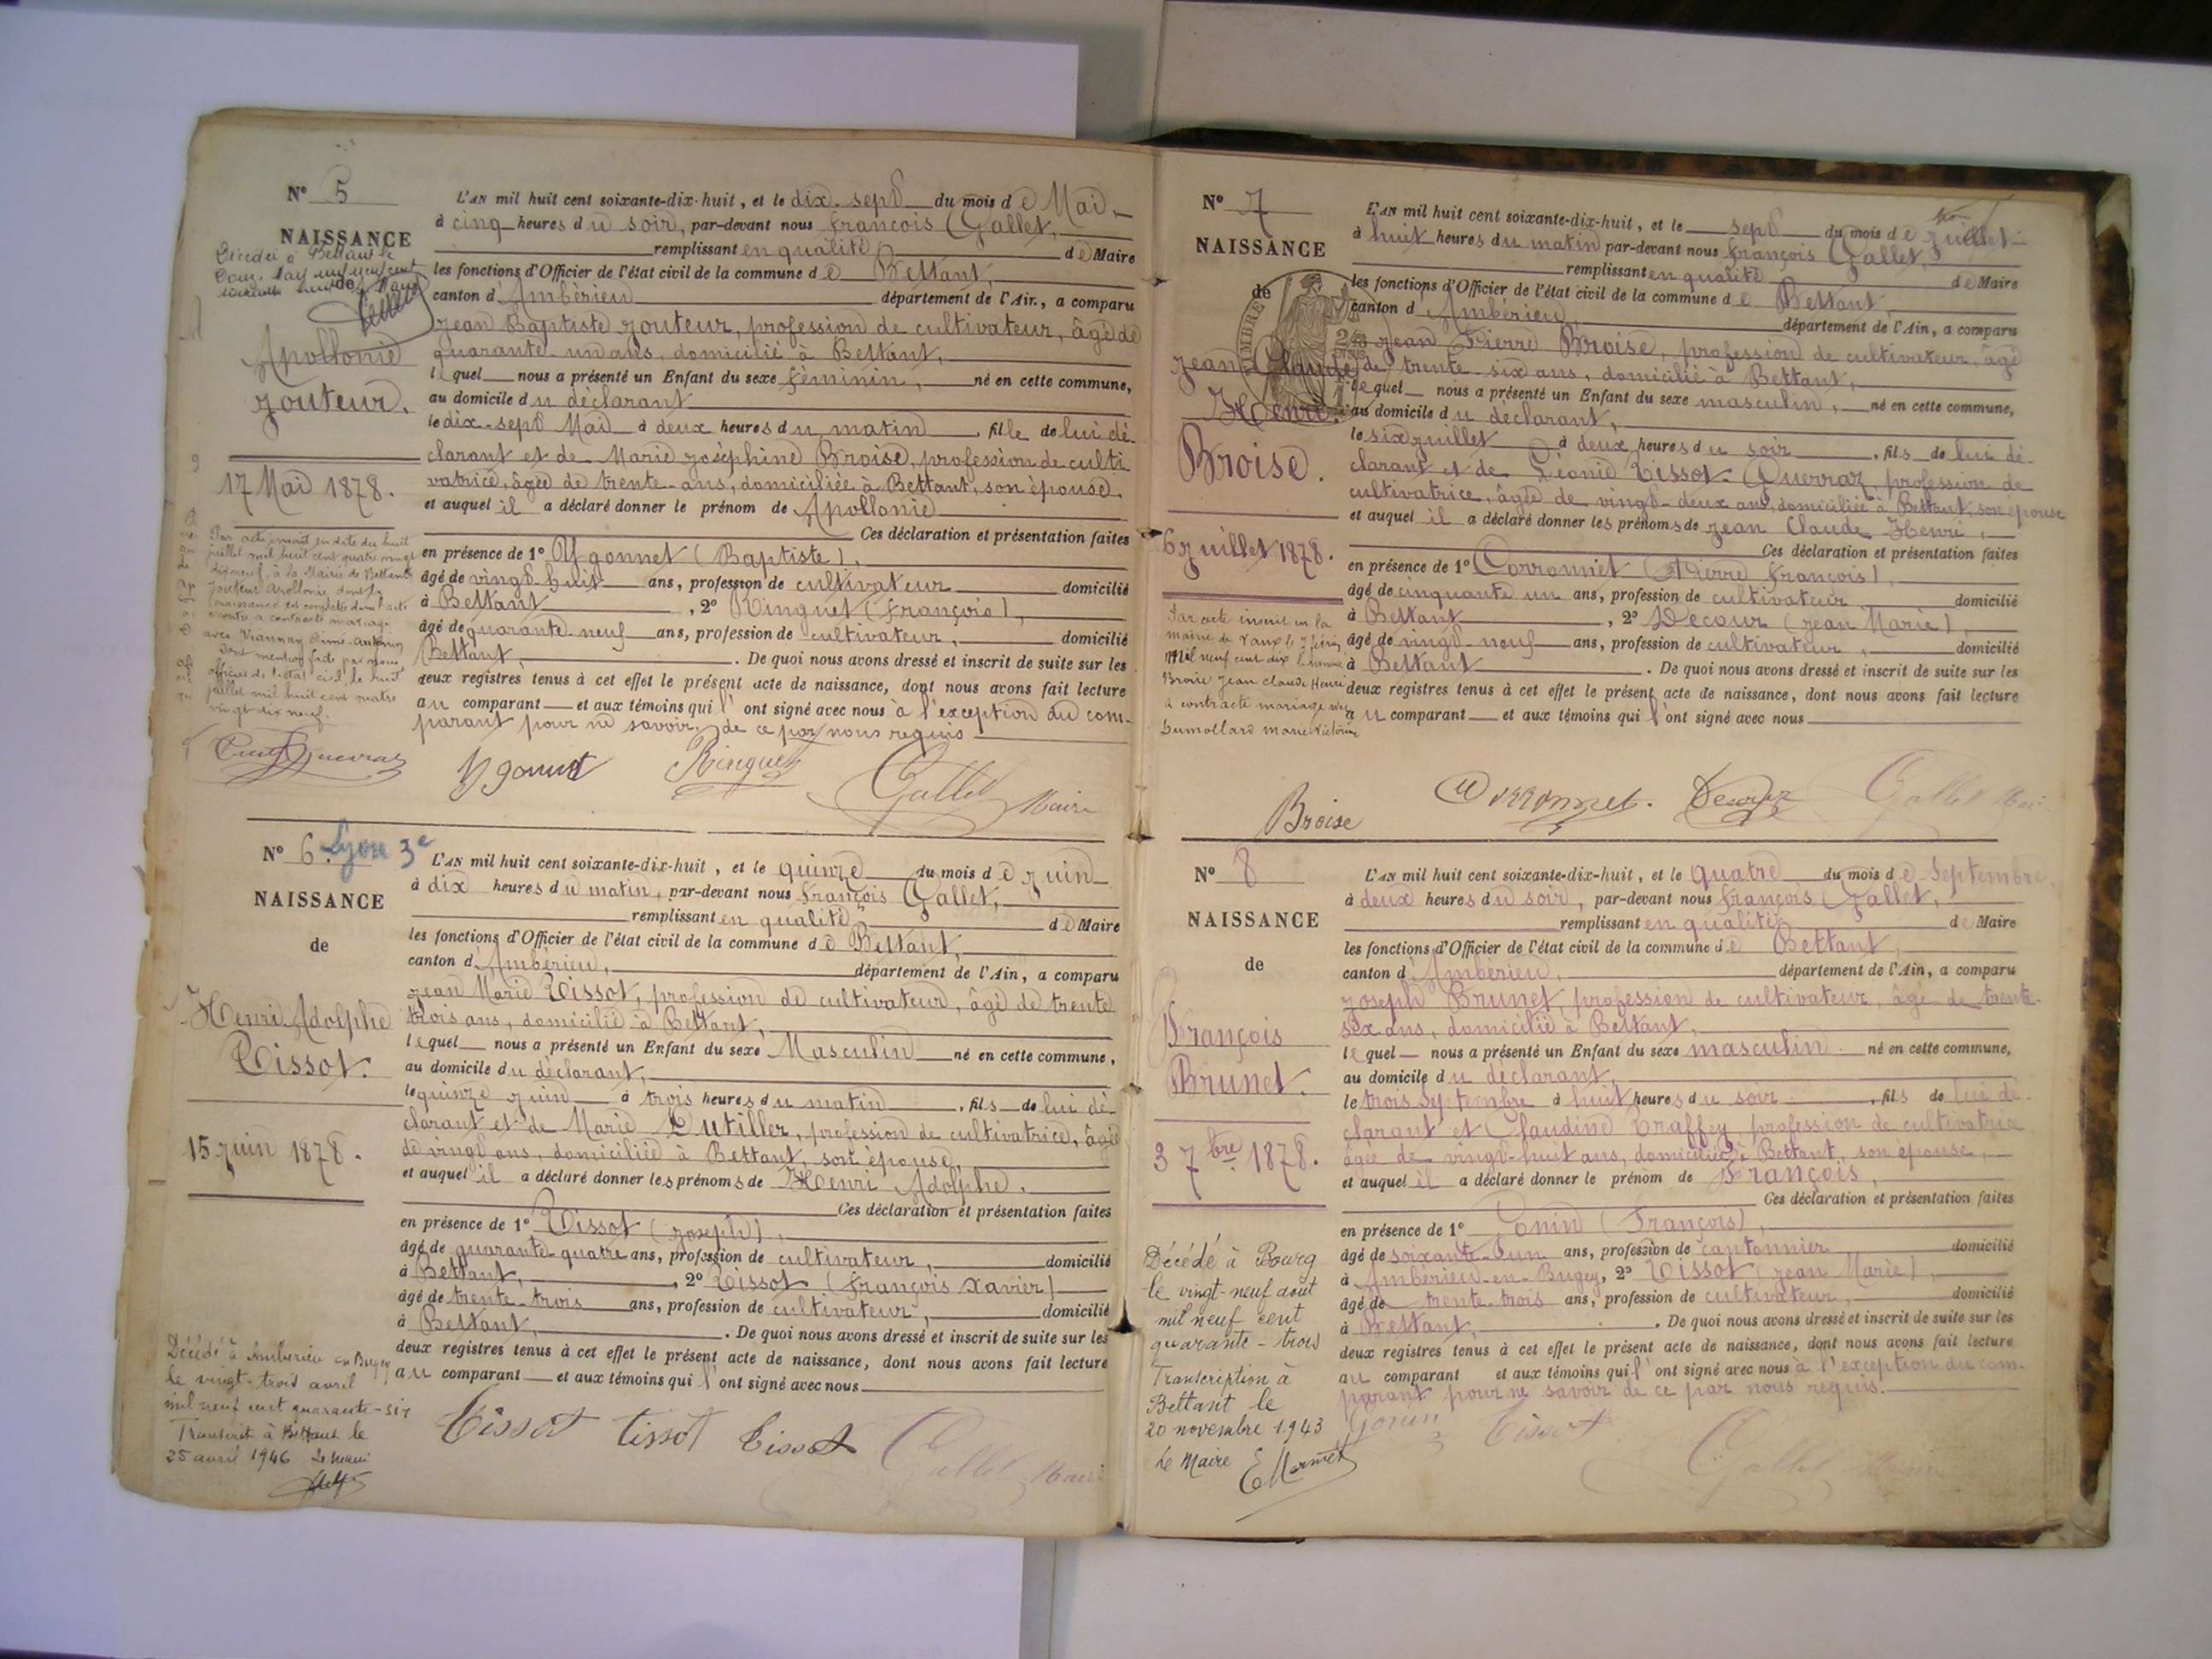 N° 5
NAISSANCE
de
Apollonie
Jouteur.
17 Mai 1878.
Par acte inscrit en date du huit
juillet mil huit cent quatre vingt
dix neuf, à la Mairie de Bettant
Jouteur Apollonie dont la
naissance est constatée dans l'acte
a contracté mariage
avec Viannay Aimé-Antoine
Dont mention faite par nous
officier de l'état civil le huit
juillet mil huit cent quatre
vingt dix neuf.
L'AN mil huit cent soixante-dix-huit, et le dix-sept du mois de Mai,
à cinq heures du soir, par-devant nous François Gallet,
remplissant en qualité de Maire
les fonctions d'Officier de l'état civil de la commune de Bettant,
canton d'Ambérieu département de l'Ain, a comparu
Jean Baptiste Jouteur, profession de cultivateur, âgé de
quarante-un ans, domicilié à Bettant,
lequel nous a présenté un Enfant du sexe féminin, né en cette commune,
au domicile du déclarant
le dix-sept Mai à deux heures du matin, fille de lui dé-
clarant et de Marie Joséphine Broise, profession de culti
vatrice, âgée de trente-ans, domiciliée à Bettant, son épouse,
et auquel il a déclaré donner le prénom de Apollonie
Ces déclaration et présentation faites
en présence de 1° Ygonnet (Baptiste),
âgé de vingt-huit ans, profession de cultivateur domicilié
à Bettant, 2° Ringuet (François),
âgé de quarante-neuf ans, profession de cultivateur, domicilié
Bettant, . De quoi nous avons dressé et inscrit de suite sur les
deux registres tenus à cet effet le présent acte de naissance, dont nous avons fait lecture
au comparant et aux témoins qui l'ont signé avec nous à l'exception du com-
parant pour ne savoir, de ce par nous requis
Ygonnet Ringuet Gallet Maire
N° 6. Lyon 3e
NAISSANCE
de
Henri Adolphe
Tissot.
15 Juin 1878.
Décédé à Ambérieu en Bugey
le vingt-trois avril
mil neuf cent quarante-six
Transcrit à Bettant le
25 avril 1946 Le Maire
L'AN mil huit cent soixante-dix-huit, et le quinze du mois de Juin
à dix heures du matin, par-devant nous François Gallet,
remplissant en qualité de Maire
les fonctions d'Officier de l'état civil de la commune de Bettant,
canton d'Ambérieu, département de l'Ain, a comparu
Jean Marie Tissot, profession de cultivateur, âgé de trente
trois ans, domicilié à Bettant,
lequel nous a présenté un Enfant du sexe Masculin né en cette commune,
au domicile du déclarant,
le quinze Juin à trois heures du matin, fils de lui dé-
clarant et de Marie Dutiller, profession de cultivatrice, âgée
de vingt ans, domiciliée à Bettant, son épouse,
et auquel il a déclaré donner les prénoms de Henri Adolphe.
Ces déclaration et présentation faites
en présence de 1° Tissot (Joseph),
âgé de quarante-quatre ans, profession de cultivateur, domicilié
à Bettant, , 2° Tissot (François Xavier)
âgé de trente-trois ans, profession de cultivateur, domicilié
à Bettant, . De quoi nous avons dressé et inscrit de suite sur les
deux registres tenus à cet effet le présent acte de naissance, dont nous avons fait lecture
au comparant et aux témoins qui l'ont signé avec nous
Tissot Tissot Tissot Gallet Maire
N° 7
NAISSANCE
de
Jean Claude
Henri
Broise.
6 Juillet 1878.
Par acte inscrit en la
mairie de Vaux le 7 février
Mil neuf cent dix le nommé
Broise Jean Claude Henri
a contracté mariage avec
Dumollard Marie Victorine
L'AN mil huit cent soixante-dix-huit, et le sept du mois de Juillet
à huit heures du matin par-devant nous François Gallet,
remplissant en qualité de Maire
les fonctions d'Officier de l'état civil de la commune de Bettant,
canton d'Ambérieu, département de l'Ain, a comparu
Jean Pierre Broise, profession de cultivateur, âgé
de trente-six ans, domicilié à Bettant,
lequel nous a présenté un Enfant du sexe masculin, né en cette commune,
au domicile du déclarant,
le six Juillet à deux heures du soir, fils de lui dé-
clarant et de Léonie Tissot-Querraz, profession de
cultivatrice, âgée de vingt-deux ans, domiciliée à Bettant, son épouse
et auquel il a déclaré donner les prénoms de Jean Claude Henri,
Ces déclaration et présentation faites
en présence de 1° Corronnet (Pierre François),
âgé de cinquante un ans, profession de cultivateur domicilié
à Bettant , 2° Decour (Jean Marie),
âgé de vingt-neuf ans, profession de cultivateur, domicilié
à Bettant . De quoi nous avons dressé et inscrit de suite sur les
deux registres tenus à cet effet le présent acte de naissance, dont nous avons fait lecture
au comparant et aux témoins qui l'ont signé avec nous
Broise Corronnet. Gallet Maire
N° 8
NAISSANCE
de
François
Brunet.
3 7bre 1878.
Décédé à Bourg
le vingt-neuf août
mil neuf cent
quarante-trois
Transcription à
Bettant le
20 novembre 1943
Le Maire
L'AN mil huit cent soixante-dix-huit, et le quatre du mois de Septembre,
à deux heures du soir, par-devant nous François Gallet,
remplissant en qualité de Maire
les fonctions d'Officier de l'état civil de la commune de Bettant,
canton d'Ambérieu, département de l'Ain, a comparu
Joseph Brunet, profession de cultivateur, âgé de trente-
six ans, domicilié à Bettant,
lequel nous a présenté un Enfant du sexe masculin né en cette commune,
au domicile du déclarant
le trois Septembre à huit heures du soir, fils de lui dé-
clarant et Claudine Traffey, profession de cultivatrice
âgée de vingt-huit ans, domiciliée à Bettant, son épouse,
et auquel il a déclaré donner le prénom de François,
Ces déclaration et présentation faites
en présence de 1° (François),
âgé de soixante-un ans, profession de cantonnier domicilié
à Ambérieu-en-Bugey, 2° Tissot (Jean Marie),
âgé de trente-trois ans, profession de cultivateur, domicilié
à Bettant, . De quoi nous avons dressé et inscrit de suite sur les
deux registres tenus à cet effet le présent acte de naissance, dont nous avons fait lecture
au comparant et aux témoins qui l'ont signé avec nous à l'exception du com-
parant pour ne savoir de ce par nous requis.
Tissot Gallet Maire